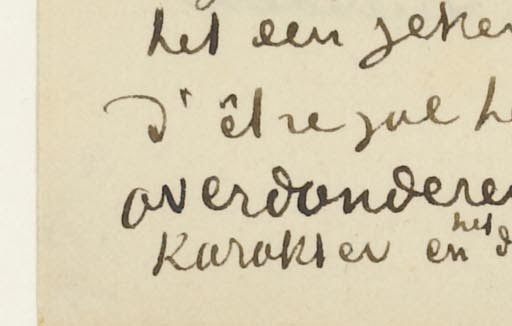 het een zeker
d'être zal he
overdonderen
Karakter en het d